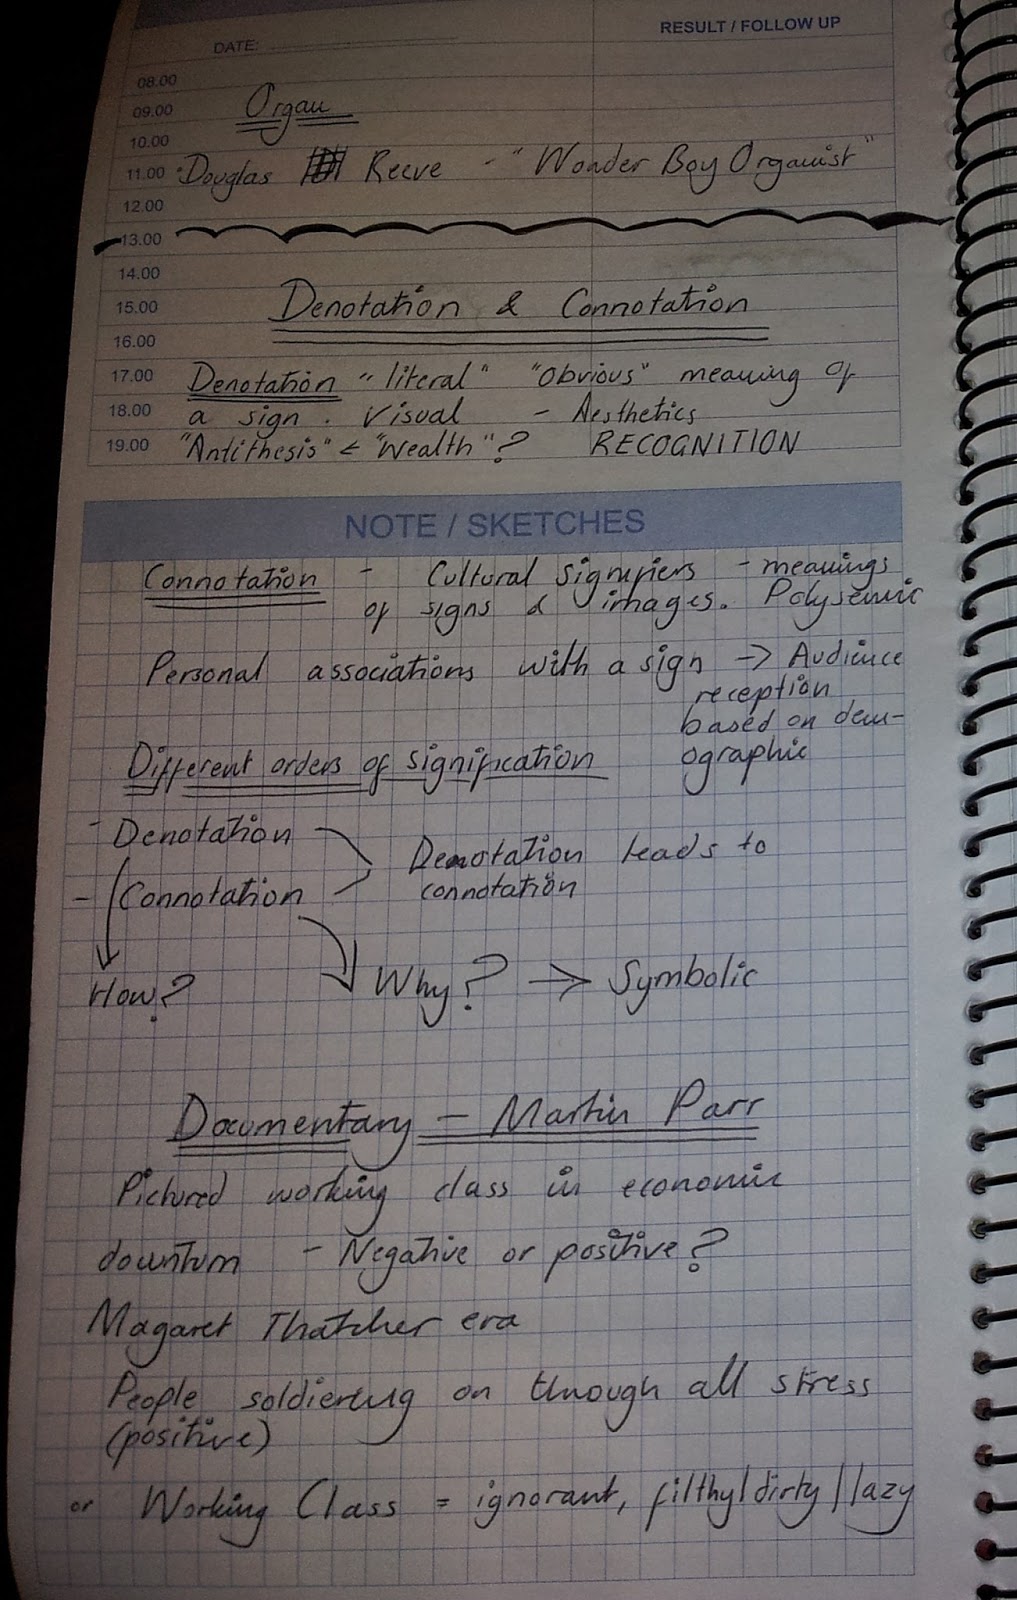 RESULT / FOLLOW UP
DATE:
08.00
09.00 Organ
10.00
11.00 Douglas Reeve - "Wonder Boy Organist"
12.00
13.00
14.00
15.00 Denotation & Connotation
16.00
17.00 Denotation "literal" "obvious" meaning of
18.00 a sign. Visual - Aesthetics
19.00 "Antithesis" < "Wealth"? RECOGNITION
NOTE / SKETCHES
Connotation - Cultural Signifiers - meanings
of signs & images. Polysemic
Personal associations with a sign -> Audience
reception
based on dem-
ographic
Different orders of signification
- Denotation
- Connotation
Denotation leads to
connotation
How? Why? -> Symbolic
Documentary - Martin Parr
Pictured working class in economic
downturn - Negative or positive?
Magaret Thatcher era
People soldiering on through all stress
(positive)
or Working Class = ignorant, filthy/dirty/lazy